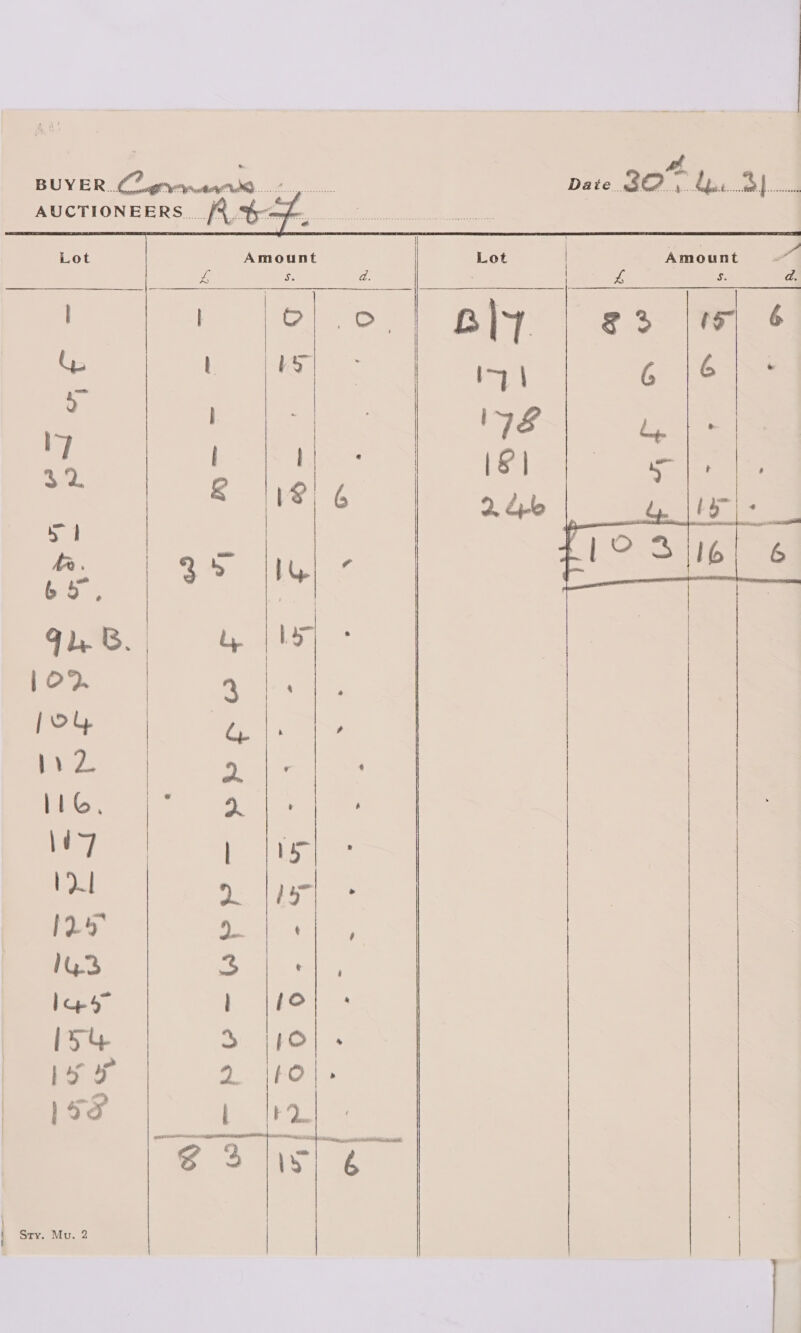 BUYER Date 30th 4. 31
AUCTIONEERS R & F.
Lot Amount
£ s. d.
1 1 0 . 0 .
4 1 15 -
5 1 - -
17 1 1 -
32 8 18 6
51
to. 35 14 -
65.
94 B. 4 15 -
102 3 - -
104 4 - -
112 2 - -
116. 2 - -
117 1 15 -
121 2 15 -
125 2 - -
143 3 - -
145 1 10 -
154 3 10 -
155 2 10 -
158 1 12 -
83 15 6
Lot Amount
£ s. d.
B/F 83 15 6
171 6 6 -
178 4 -
181 5 - -
246 4 15 -
£103 16 6
Sty. Mu. 2